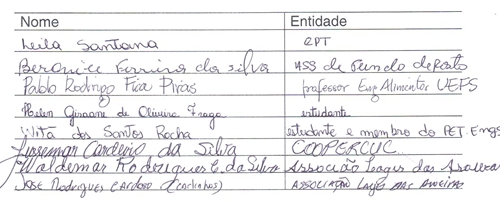 Nome Entidade
Leila Santana CPT
Berenice Ferreira da Silva ASS de Fundo de Pasto
Pablo Rodrigo Fica Piras professor Eng Alimentos UEFS
Helen Girnane de Oliveira Fraga estudante
Nita dos Santos Rocha estudante e membro do PET. Engs
Jusemar Cardeiro da Silva COOPERCUC
Waldemar Rodrigues C. da Silva Associão Lages das Aroeira
José Rodrigues Cardoso (Carlinhos) ASSOCIAÇÃO Lages das Aroeiras